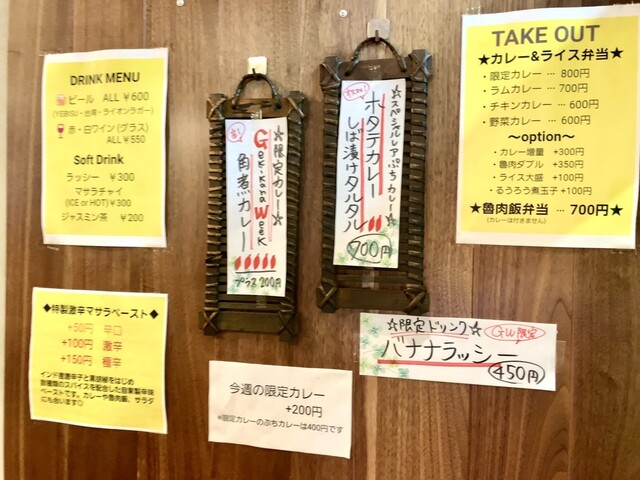 DRINK MENU
ビール ALL ¥600
(YEBISU・台湾・ライオンラガー)
赤・白ワイン(グラス)
ALL ¥550
Soft Drink
ラッシー ¥300
マサラチャイ
(ICE or HOT)¥300
ジャスミン茶 ¥200
☆限定カレー☆
辛!
GEKI-KARA WEEK
角煮カレー
プラス200円
☆スペシャルレアぷちカレー☆
ホタテカレー
しば漬けタルタル
700円
TAKE OUT
★カレー&ライス弁当★
・限定カレー … 800円
・ラムカレー … 700円
・チキンカレー … 600円
・野菜カレー … 600円
〜option〜
・カレー増量 +300円
・魯肉ダブル +350円
・ライス大盛 +100円
・るうろう煮玉子 +100円
★魯肉飯弁当 … 700円★
(カレーは付きません)
◆特製激辛マサラペースト◆
+50円 辛口
+100円 激辛
+150円 極辛
インド産唐辛子と黒胡椒をはじめ
数種類のスパイスを配合した自家製辛味
ペーストです。カレーや魯肉飯、サラダ
にも合います◇
今週の限定カレー
+200円
※限定カレーのぷちカレーは400円です
☆限定ドリンク☆ GW限定
バナナラッシー
450円